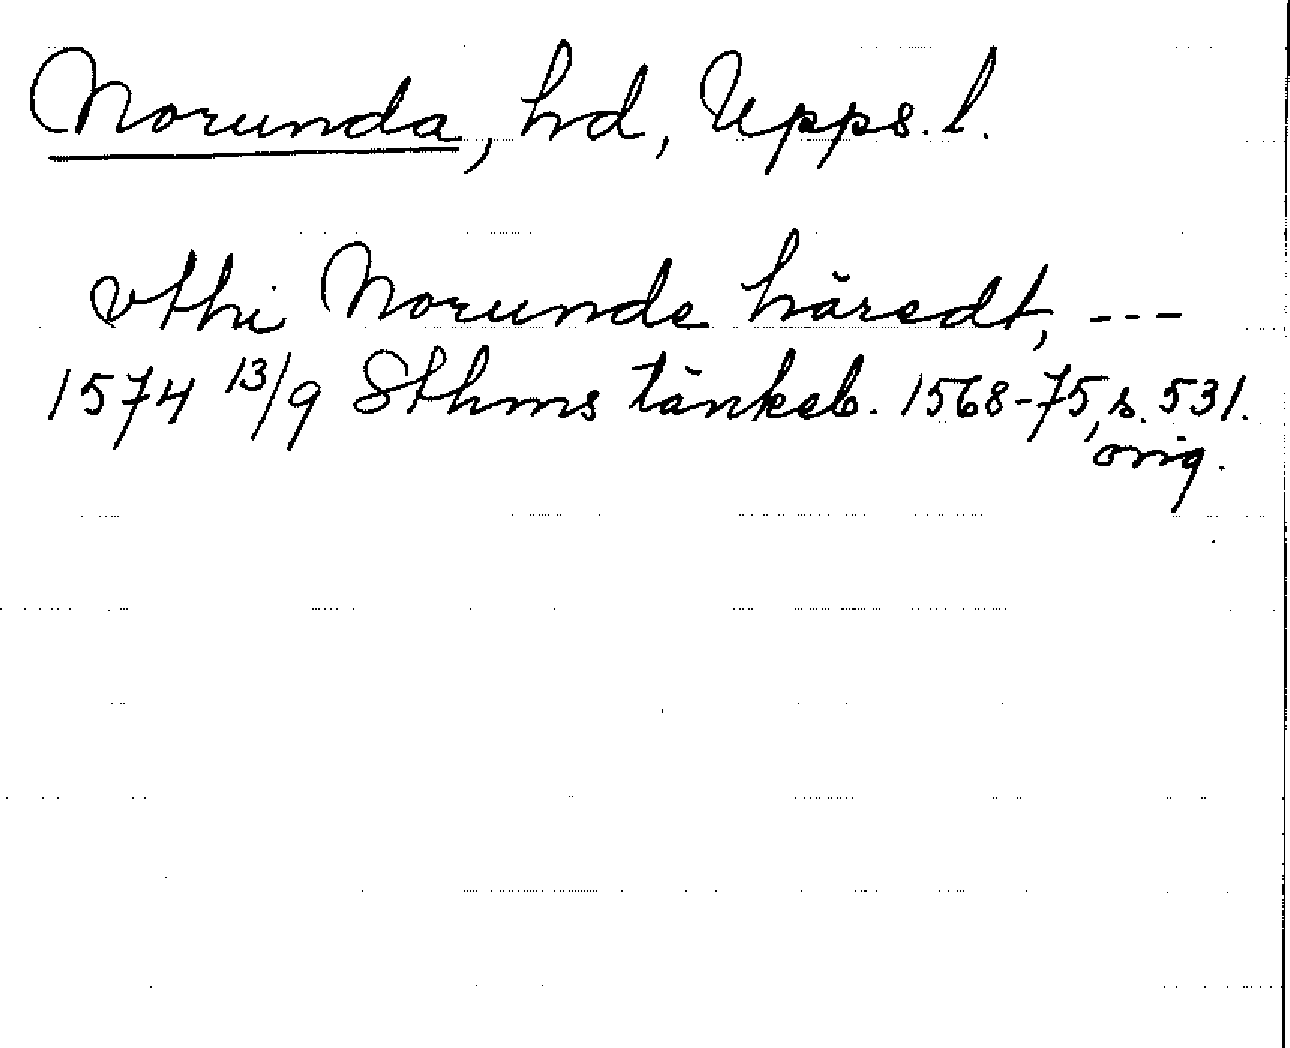 Norunda, hd, Upps. l.
vthi Norunde häredt, ---
1574 13/9 Sthms tänkeb. 1568-75, s. 531.
orig.